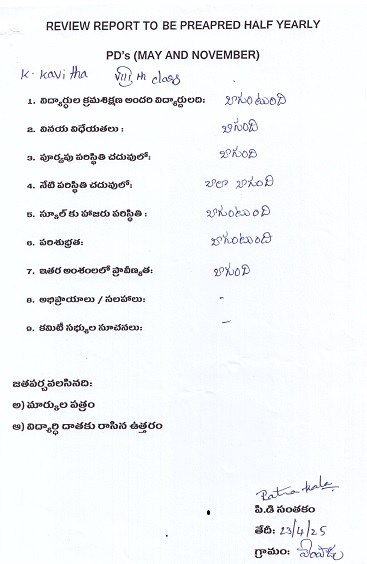 REVIEW REPORT TO BE PREAPRED HALF YEARLY
PD's (MAY AND NOVEMBER)
K. Kavitha VIII th class
1. విద్యార్థుల క్రమశిక్షణ అందరి విద్యార్థులది: బాగుంటుంది
2. వినయ విధేయతలు : బాగుంది
3. పూర్వపు పరిస్థితి చదువులో: బాగుంది
4. నేటి పరిస్థితి చదువులో: చాలా బాగుంది
5. స్కూల్ కు హాజరు పరిస్థితి : బాగుంటుంది
6. పరిశుభ్రత: బాగుంటుంది
7. ఇతర అంశంలలో ప్రావీణ్యత: బాగుంది
8. అభిప్రాయాలు / సలహాలు: -
9. కమిటీ సభ్యుల సూచనలు: -
జతపర్చవలసినది:
అ) మార్కుల పత్రం
ఆ) విద్యార్థి దాతకు రాసిన ఉత్తరం
Ratna Kala
పి.డి సంతకం
తేదీ: 23/4/25
గ్రామం: